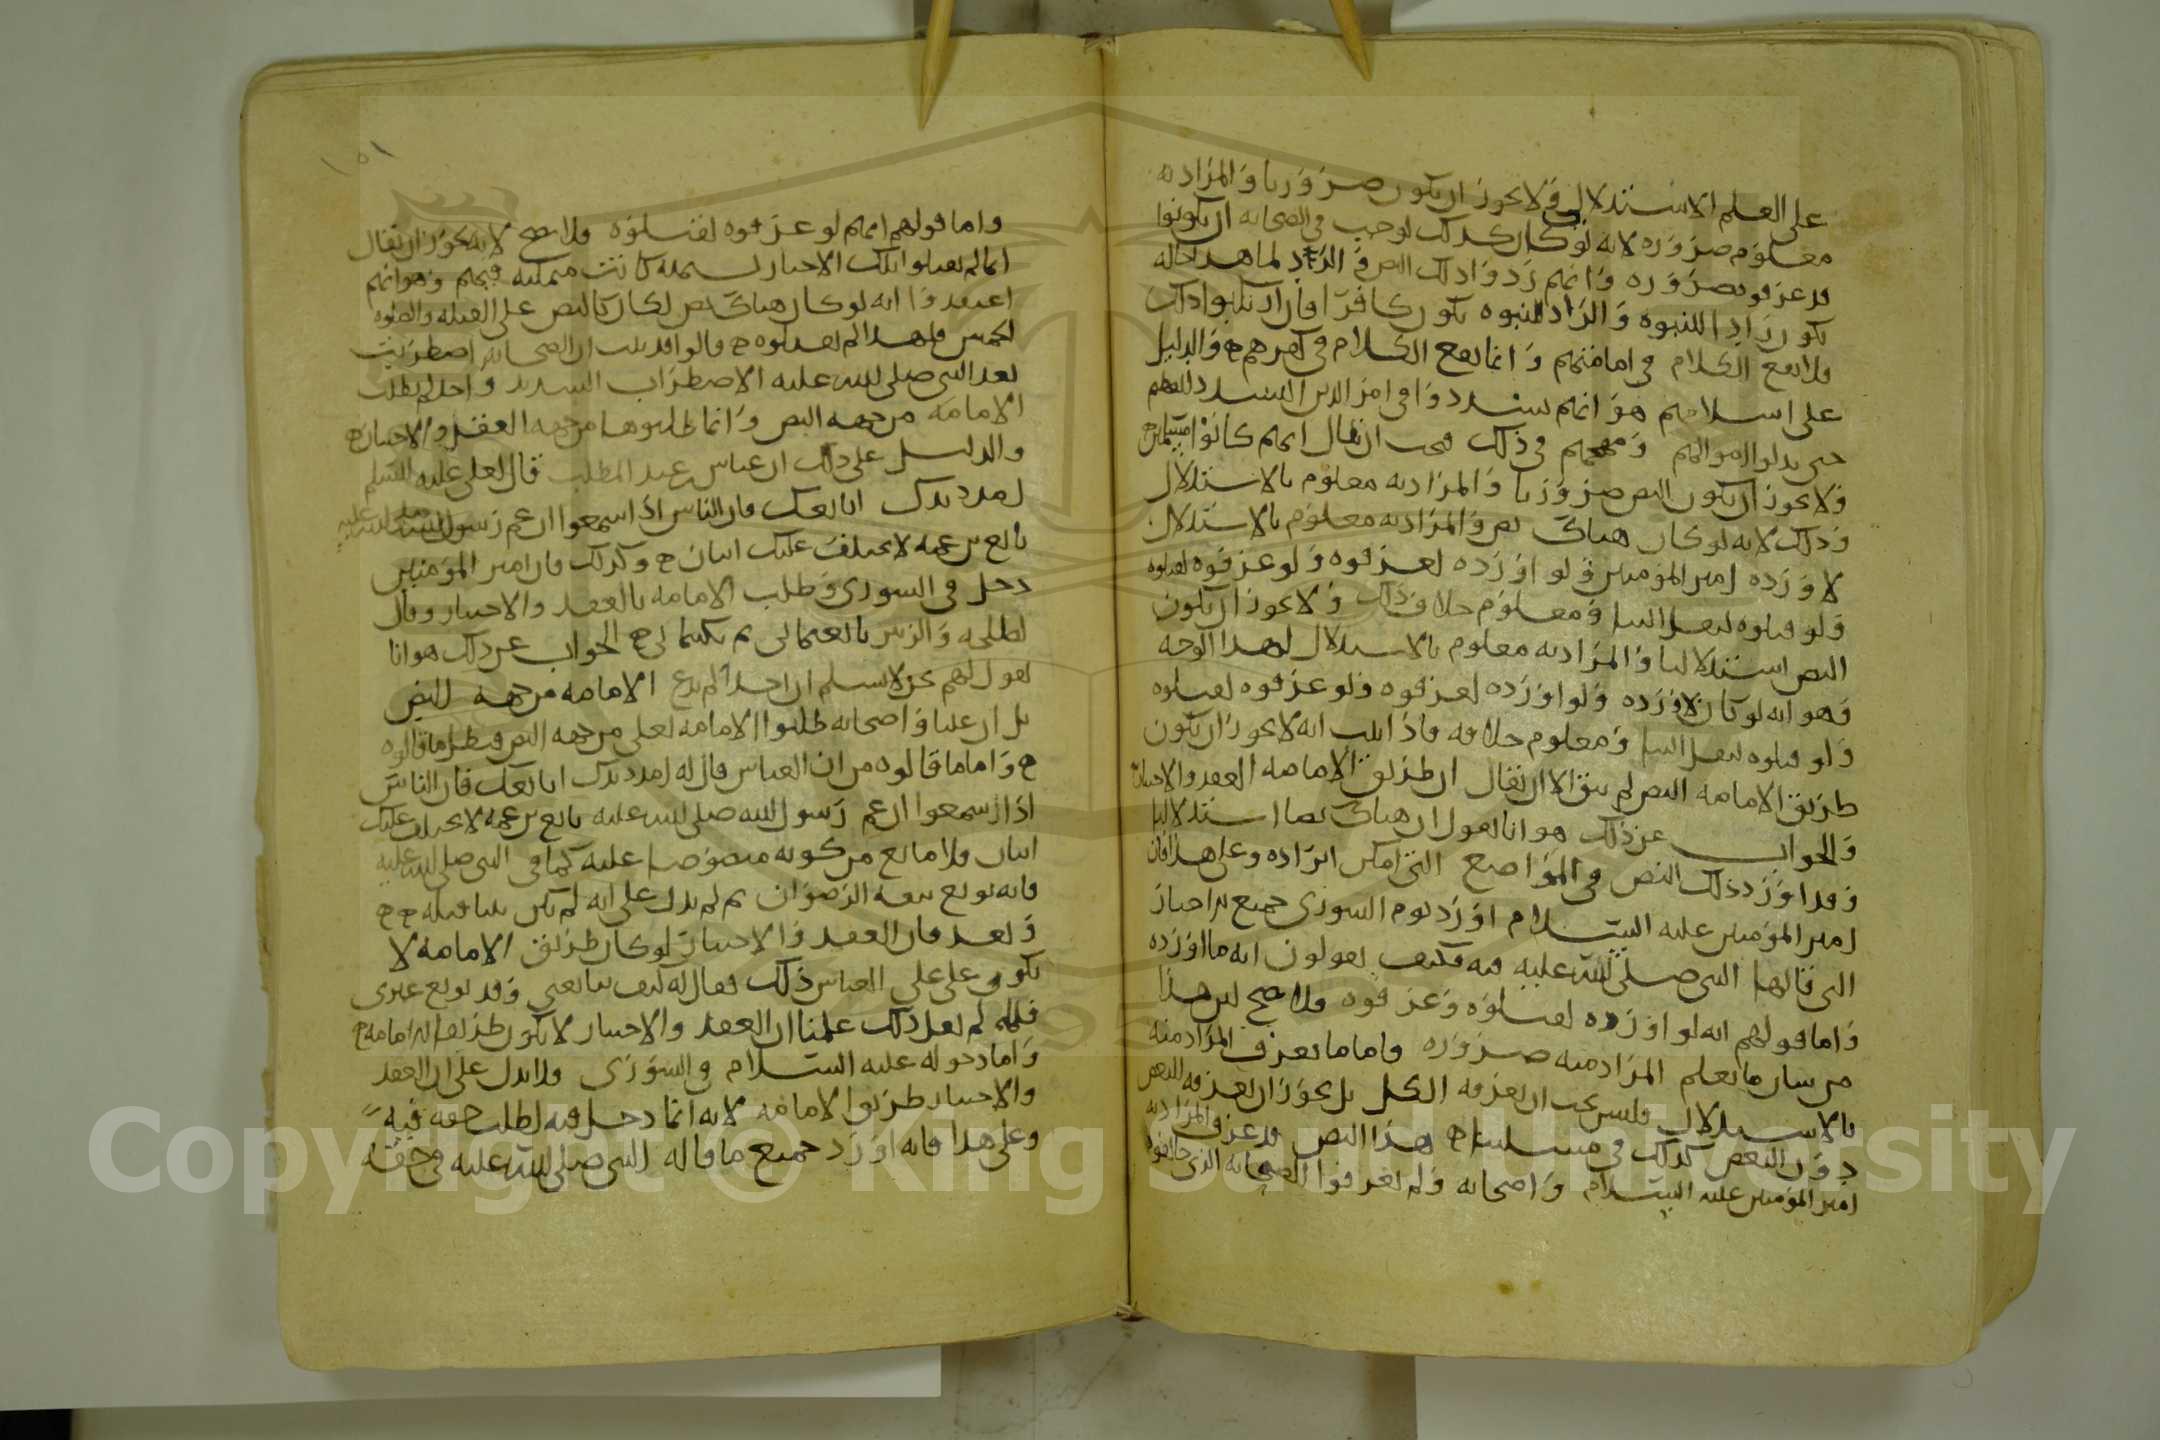 على العلم الاستدلال ولا يجوز ان يكون ضروريا والمراد به
معلوم ضروره لانه لو كان كذلك لوجب في الصحابه ان يكونوا
قد عرفوه ضروره وانهم ردوا ذلك النص والراد لما هذا حاله
يكون رادا للنبوه والراد للنبوه يكون كافرا فان ارتكبوا ذلك
فلا يقع الكلام في امامتهم وانما يقع الكلام في كفرهم ه والدليل
على اسلامهم هو انهم تشددوا في امر الدين التشدد العظيم
حتى بذلوا اموالهم ومهجهم في ذلك فيجب ان يقال انهم كانوا مسلمين
ولا يجوز ان يكون النص ضروريا والمراد به معلوم بالاستدلال
وذلك لانه لو كان هناك نص والمراد به معلوم بالاستدلال
لاورده امير المومنين ولو اورده لعرفوه ولو عرفوه لقبلوه
ولو قبلوه لنقل الينا ومعلوم خلاف ذلك ولا يجوز ان يكون
النص استدلاليا والمراد به معلوم بالاستدلال لهذا الوجه
وهو انه لو كان لاورده ولو اورده لعرفوه ولو عرفوه لقبلوه
ولو قبلوه لنقل الينا ومعلوم خلافه فاذا ثبت انه لا يجوز ان يكون
طريق الامامه النص لم يبق الا ان يقال ان طريق الامامه العقد والاختيار
والجواب عن ذلك هو انا نقول ان هناك نصا استدلاليا
وقد اورد ذلك النص في المواضع التي امكن ايراده وعلى هذا فان
امير المومنين عليه السلام اورد يوم الشورى جميع الاخبار
التي قالها النبي صلى الله عليه فيه فكيف يقولون انه ما اورده
واما قولهم انه لو اورده لقبلوه وعرفوه فلا يصح ليس هذا
من سار ما يعلم المراد منه ضروره واما ما يعرف المراد منه
بالاستدلال فليس يجب ان يعرفه الكل بل يجوز ان يعرفه البعض
دون البعض كذلك في مسلتنا ه هذا النص قد عرف المراد به
امير المومنين عليه السلام واصحابه ولم يعرفوا الصحابه الذي خالفوه
١٥١
واما قولهم انهم لو عرفوه لقبلوه فلا يصح لانه يجوز ان يقال
انما لم يقبلوا تلك الاخبار لشبهه كانت متمكنه فيهم وهو انهم
اعتقدوا انه لو كان هناك نص لكان كالنص على القبله والصلوه
الخمس فلهذا لم يقبلوه ه قالوا قد ثبت ان الصحابه اضطربت
بعد النبي صلى الله عليه الاضطراب الشديد واحد لم يطلب
الامامه من جهه النص وانما طلبوها من جهه العقد والاختيار ه
والدليل على ذلك ان عباس بن عبد المطلب قال لعلي عليه السلم
امدد يدك ابايعك فان الناس اذا سمعوا ان عم رسول الله صلى الله عليه
بايع بن عمه لا يختلف عليك اثنان ه وكذلك فان امير المومنين
دخل في الشورى وطلب الامامه بالعقد والاختيار وقال
لطلحه والزبير بايعتماني ثم نكثتماني ه الجواب عن ذلك هو انا
نقول لهم نحن لا نسلم ان احدا لم يدع الامامه من جهه النص
بل ان عليا واصحابه طلبوا الامامه لعلي من جهه النص فبطل ما قالوه
ه واما ما قالوه من ان العباس قال له امدد يدك ابايعك فان الناس
اذا سمعوا ان عم رسول الله صلى الله عليه بايع بن عمه لا يختلف عليك
اثنان فلا مانع من كونه منصوصا عليه كما في النبي صلى الله عليه
فانه بويع بيعه الرضوان ثم لم يدل على انه لم يكن نبيا قبله ه ه
وبعد فان العقد والاختيار لو كان طريق الامامه لا
نكر علي على العباس ذلك فقال له كيف تبايعني وقد بويع غيري
فلما لم يقل ذلك علمنا ان العقد والاختيار لا يكون طريقا للامامه ه
واما دخوله عليه السلام في الشورى فلا يدل على ان العقد
والاختيار طريق الامامه لانه انما دخل فيه لطلب حقه فيه
وعلى هذا فانه اورد جميع ما قاله النبي صلى الله عليه في حقه
Copyright © King Saud University